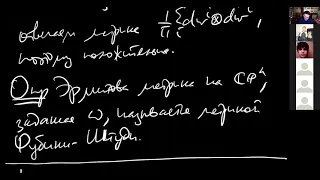 отвечает метрика 1/π Σ dwⁱ⊗dw̄ⁱ,
поэтому положительна.
Опр Эрмитова метрика на CPⁿ,
заданная ω, называется метрикой
Фубини-Штуди.